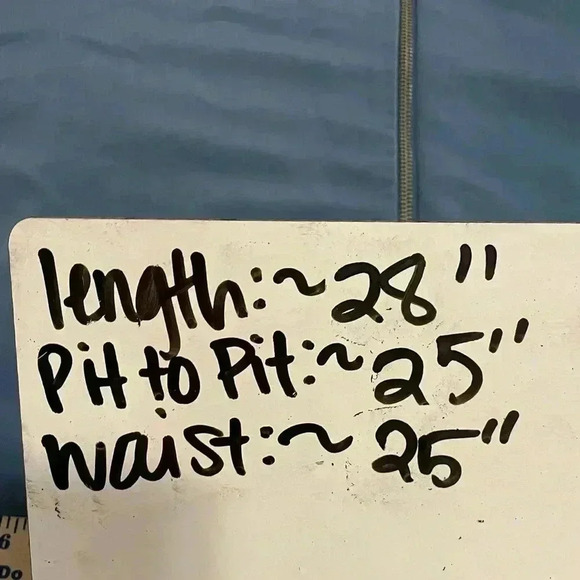 length: ~28"
Pit to Pit: ~25"
waist: ~25"
6
Do